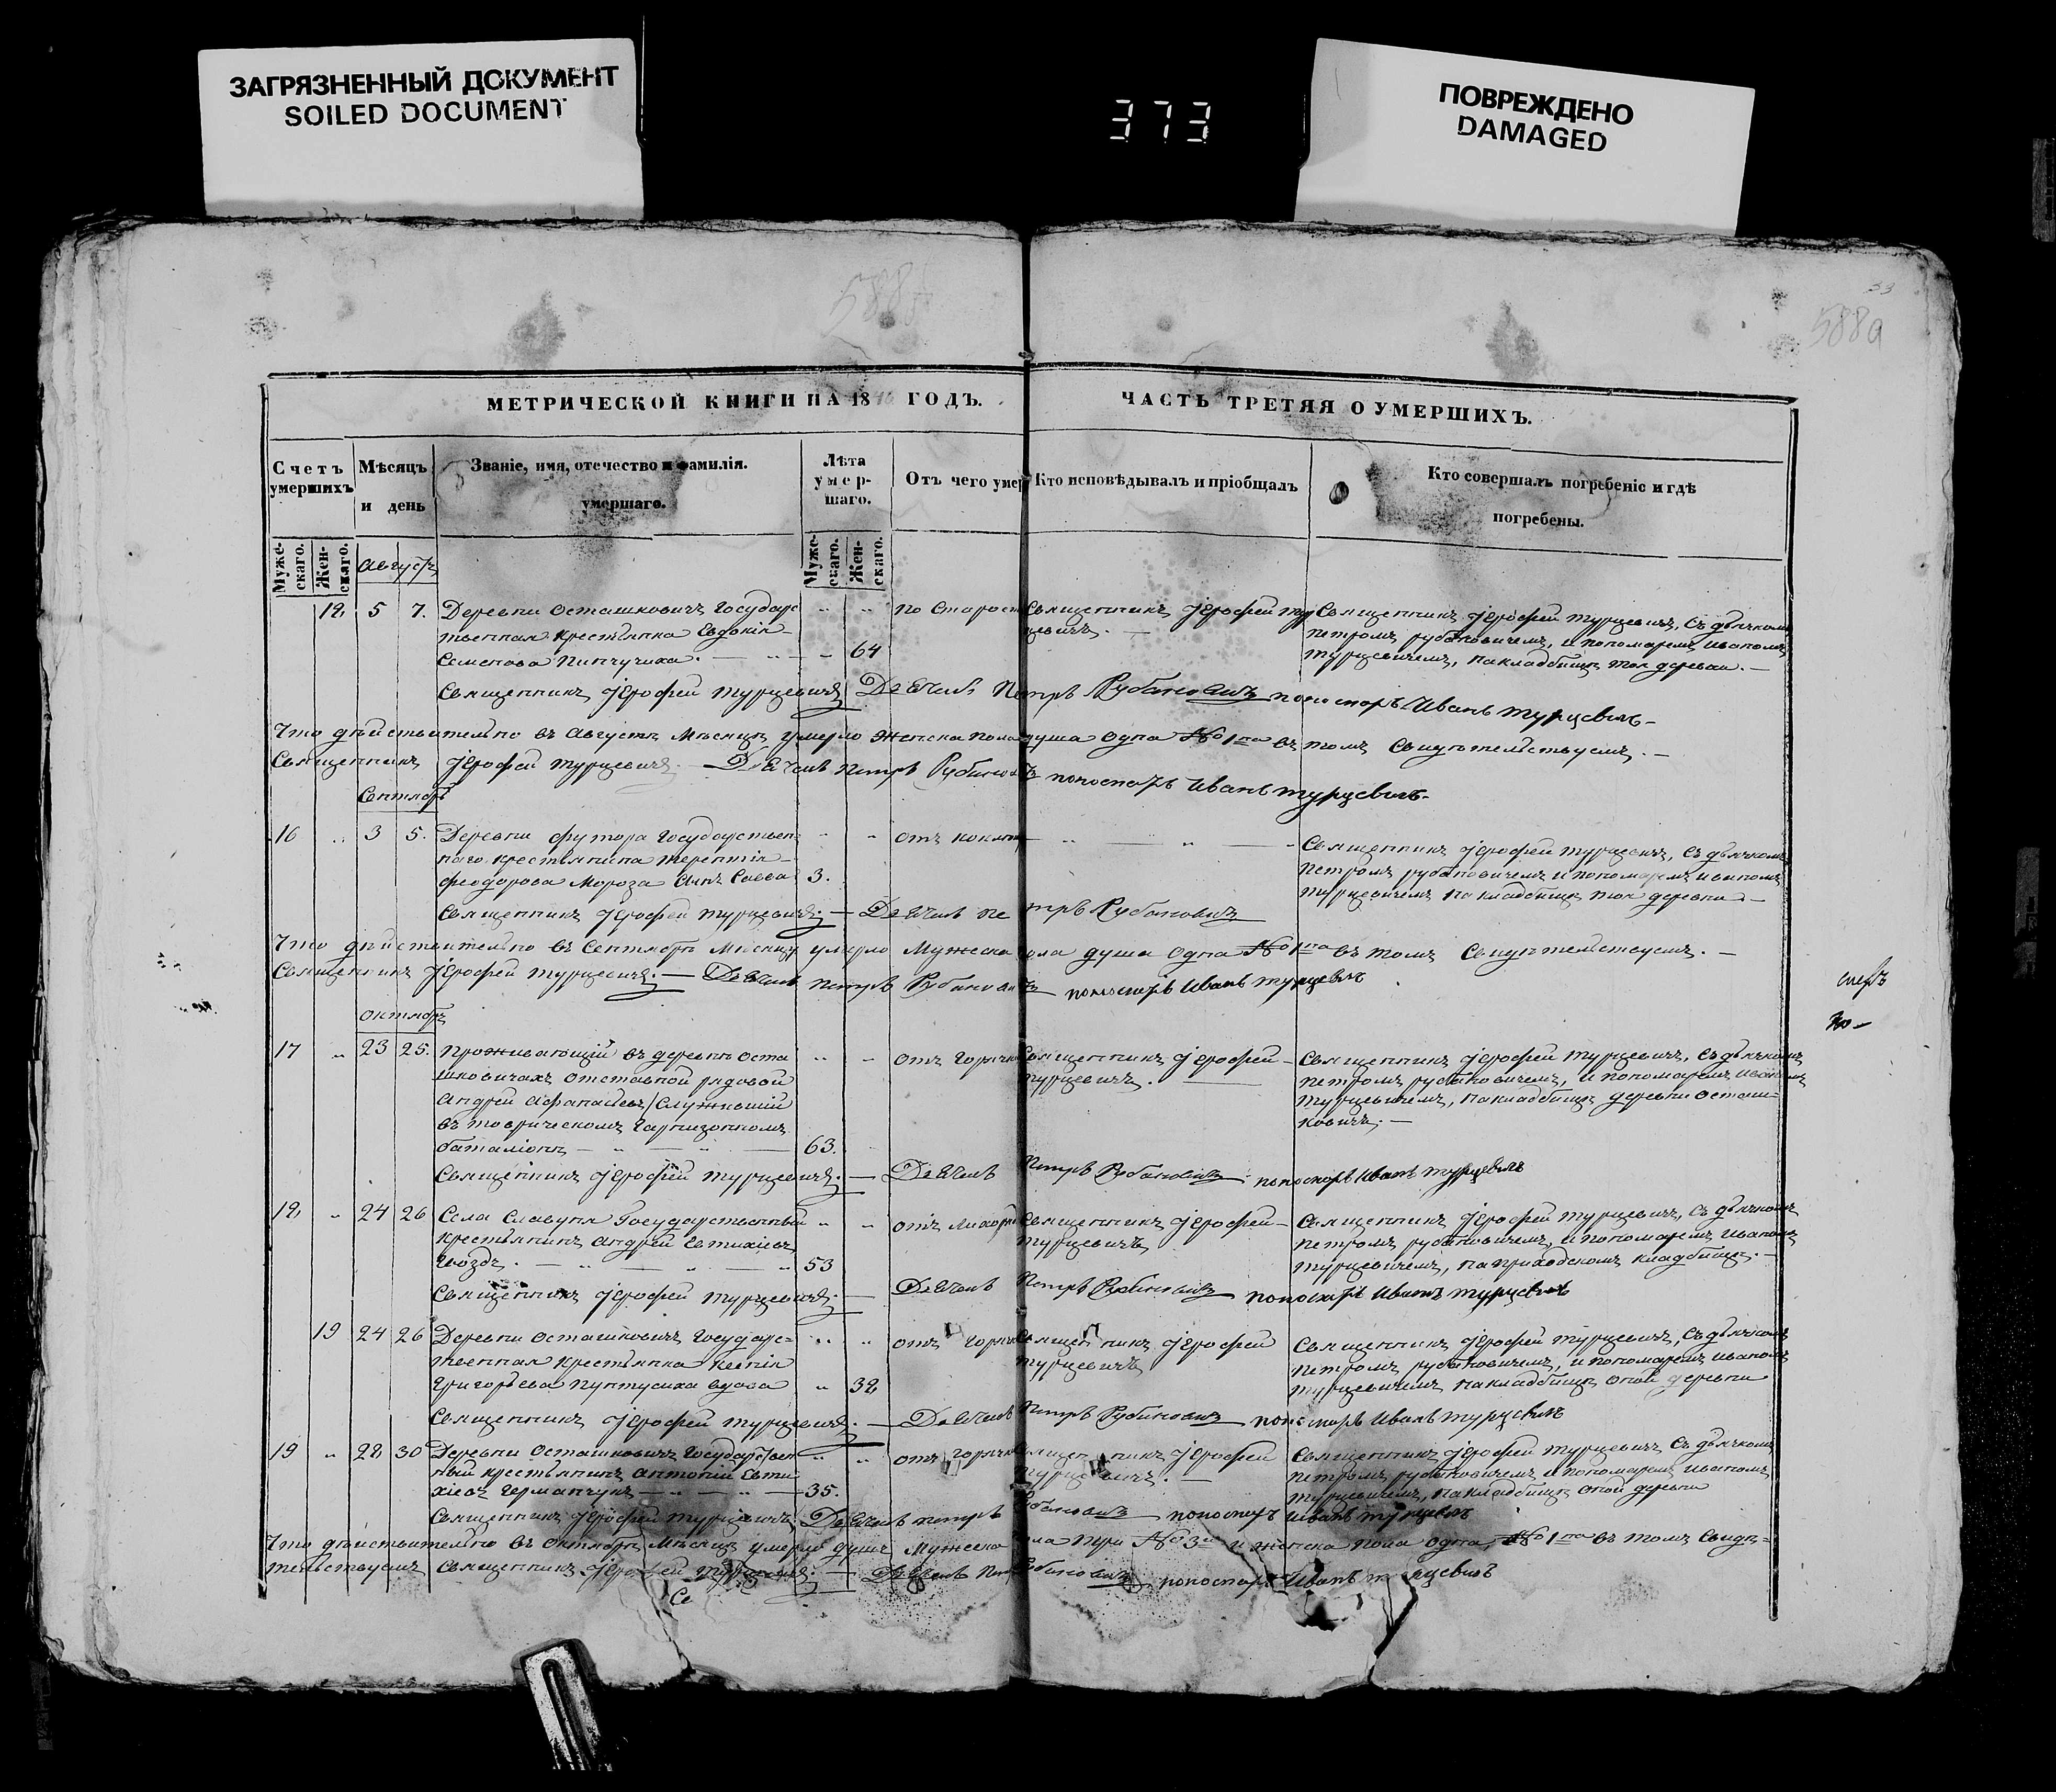 ЗАГРЯЗНЕННЫЙ ДОКУМЕНТ
SOILED DOCUMENT
373
ПОВРЕЖДЕНО
DAMAGED
33
588а
МЕТРИЧЕСКОЙ КНИГИ НА 18 ГОДЪ.
ЧАСТЬ ТРЕТЯЯ О УМЕРШИХЪ.
Счетъ умершихъ
Мѣсяцъ и день
Званіе, имя, отечество и фамилія. умершаго.
Лѣта умер-шаго.
Отъ чего умер
Кто исповѣдывалъ и пріобщалъ
Кто совершалъ погребеніе и гдѣ погребены.
Муже-скаго.
Жен-скаго.
Муже-скаго.
Жен-скаго.
Августъ
18 5 7. Деревни Осташковичъ Государс
твенная Крестьянка Евдокія
Семенова Пинчучиха. 64
по Старост
Священникъ Іерофей Тур
цевичъ.
Священникъ Іерофей Турцевичъ, Съ дьячкомъ
Петромъ Рубановичемъ, и пономаремъ Иваномъ
Турцевичемъ, на кладбищѣ той деревни.
Священникъ Іерофей Турцевичъ Дьячекъ Петръ Рубановичъ пономаръ Иванъ Турцевичъ
Что дѣйствительно въ Августѣ Мѣсяцѣ умерло Женска пола душа одна №1на въ томъ Свидѣтельствуемъ.
Священникъ Іерофей Турцевичъ. Дьячекъ Петръ Рубановичъ пономаръ Иванъ Турцевичъ
Сентябръ
16 3 5. Деревни Футора Государствен
наго крестьянина Терентія
Феодорова Мороза Сынъ Савва 3.
отъ коклюш
Священникъ Іерофей Турцевичъ, Съ дьячкомъ
Петромъ Рубановичемъ и пономаремъ Иваномъ
Турцевичемъ на кладбищѣ той деревни
Священникъ Іерофей Турцевичъ. Дьячекъ Петръ Рубановичъ
Что дѣйствительно въ Сентябрѣ Мѣсяцѣ умерло Мужеска пола душа одна №1на въ томъ Свидѣтельствуемъ.
Священникъ Іерофей Турцевичъ. Дьячекъ Петръ Рубановичъ пономаръ Иванъ Турцевичъ
Октябръ
17 23 25. Проживающій въ деревнѣ Оста
шковичахъ отставной рядовой
Андрей Афанасьевъ Служившій
въ Товрическомъ Гарнизонномъ
баталіонѣ 63.
отъ Горячк
Священникъ Іерофей
Турцевичъ.
Священникъ Іерофей Турцевичъ, Съ дьячкомъ
Петромъ Рубановичемъ, и пономаремъ Иваномъ
Турцевичемъ, на кладбищѣ деревни Осташ-
ковичъ.
Священникъ Іерофей Турцевичъ. Дьячекъ Петръ Рубановичъ пономаръ Иванъ Турцевичъ
18 24 26 Села Славуня Государственный
крестьянинъ Андрей Евтихіевъ
Гвоздь. 53
отъ Лихорд
Священникъ Іерофей
Турцевичъ
Священникъ Іерофей Турцевичъ, Съ дьячкомъ
Петромъ Рубановичемъ, и пономаремъ Иваномъ
Турцевичемъ, на приходскомъ кладбищѣ.
Священникъ Іерофей Турцевичъ. Дьячекъ Петръ Рубановичъ пономаръ Иванъ Турцевичъ
19 24 26 Деревни Осташковичъ Государс-
твенная Крестьянка Ксенія
Григорьева Пунтусиха вдова 38
отъ Горяч
Священникъ Іерофей
Турцевичъ
Священникъ Іерофей Турцевичъ, Съ дьячкомъ
Петромъ Рубановичемъ, и пономаремъ Иваномъ
Турцевичемъ на кладбищѣ оной деревни
Священникъ Іерофей Турцевичъ. Дьячекъ Петръ Рубановичъ пономаръ Иванъ Турцевичъ
19 28 30 Деревни Осташковичъ Государствен
ный крестьянинъ Антоній Евти
хіевъ Германчукъ 35.
отъ Горячк
Священникъ Іерофей
Турцевичъ.
Священникъ Іерофей Турцевичъ Съ дьячкомъ
Петромъ Рубановичемъ и пономаремъ Иваномъ
Турцевичемъ, на кладбищѣ оной деревни
Священникъ Іерофей Турцевичъ. Дьячекъ Петръ Рубановичъ пономаръ Иванъ Турцевичъ
Что дѣйствительно въ Октябрѣ Мѣсяцѣ умерло душъ Мужеска пола три №3и и женска пола одна №1на въ томъ Свидѣ-
тельствуемъ Священникъ Іерофей Турцевичъ. Дьячекъ Петръ Рубановичъ пономаръ Иванъ Турцевичъ
Се